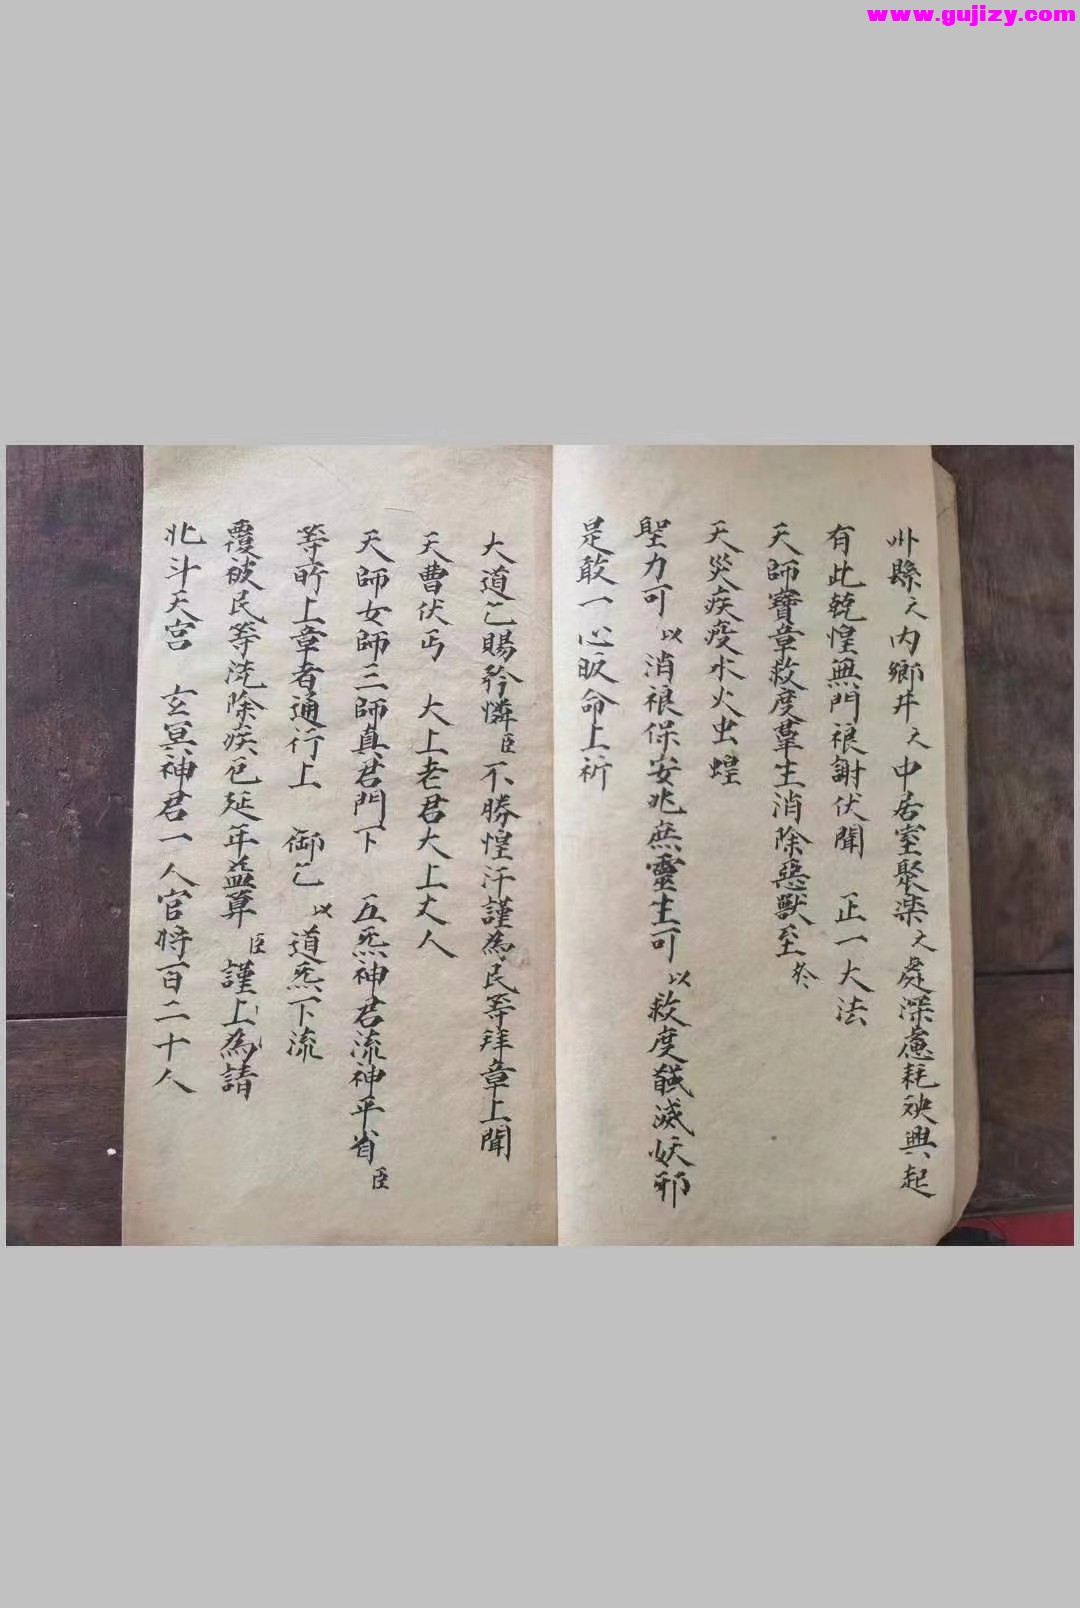 www.gujizy.com
州縣之内鄉井之中居室聚栾之處深慮耗殃興起
有此兢惶無門禳謝伏聞　正一大法
天師寶章救度羣生消除惡獸至於
天災疾疫水火虫蝗
聖力可以消禳保安兆庶靈生可以救度馘滅妖邪
是敢一心皈命上祈
大道乞賜矜憐臣不勝惶汗謹為民等拜章上聞
天曹伏丐　大上老君大上丈人
天師女師三師真君門下　五炁神君流神平省臣
等所上章者通行上　御乞以道炁下流
覆被民等洗除疾厄延年益算臣謹上為請
北斗天宫　玄冥神君一人官将百二十人